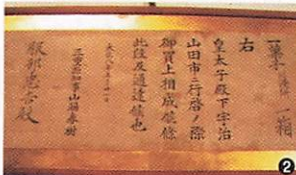 一 筆 一箱
右
皇太子殿下宇治
山田市ヘ行啓ノ際
御買上相成候條
此段及通達候也
三重縣知事山脇春樹
服部忠吉殿
2